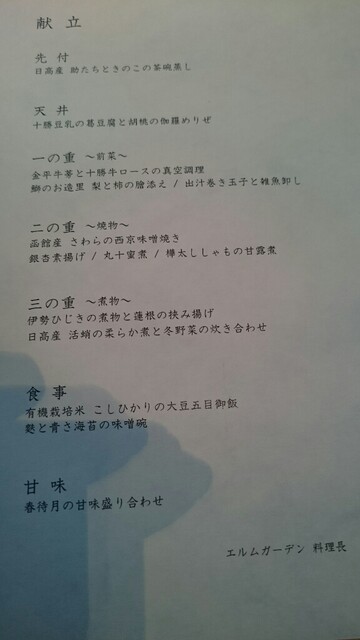 献立
先付
日高産 助たちときのこの茶碗蒸し
天井
十勝豆乳の葛豆腐と胡桃の伽羅めりぜ
一の重 〜前菜〜
金平牛蒡と十勝牛ロースの真空調理
鰤のお造里 梨と柿の膾添え / 出汁巻き玉子と雑魚卸し
二の重 〜焼物〜
函館産 さわらの西京味噌焼き
銀杏素揚げ / 丸十蜜煮 / 樺太ししゃもの甘露煮
三の重 〜煮物〜
伊勢ひじきの煮物と蓮根の挟み揚げ
日高産 活蛸の柔らか煮と冬野菜の炊き合わせ
食事
有機栽培米 こしひかりの大豆五目御飯
麩と青さ海苔の味噌碗
甘味
春待月の甘味盛り合わせ
エルムガーデン 料理長